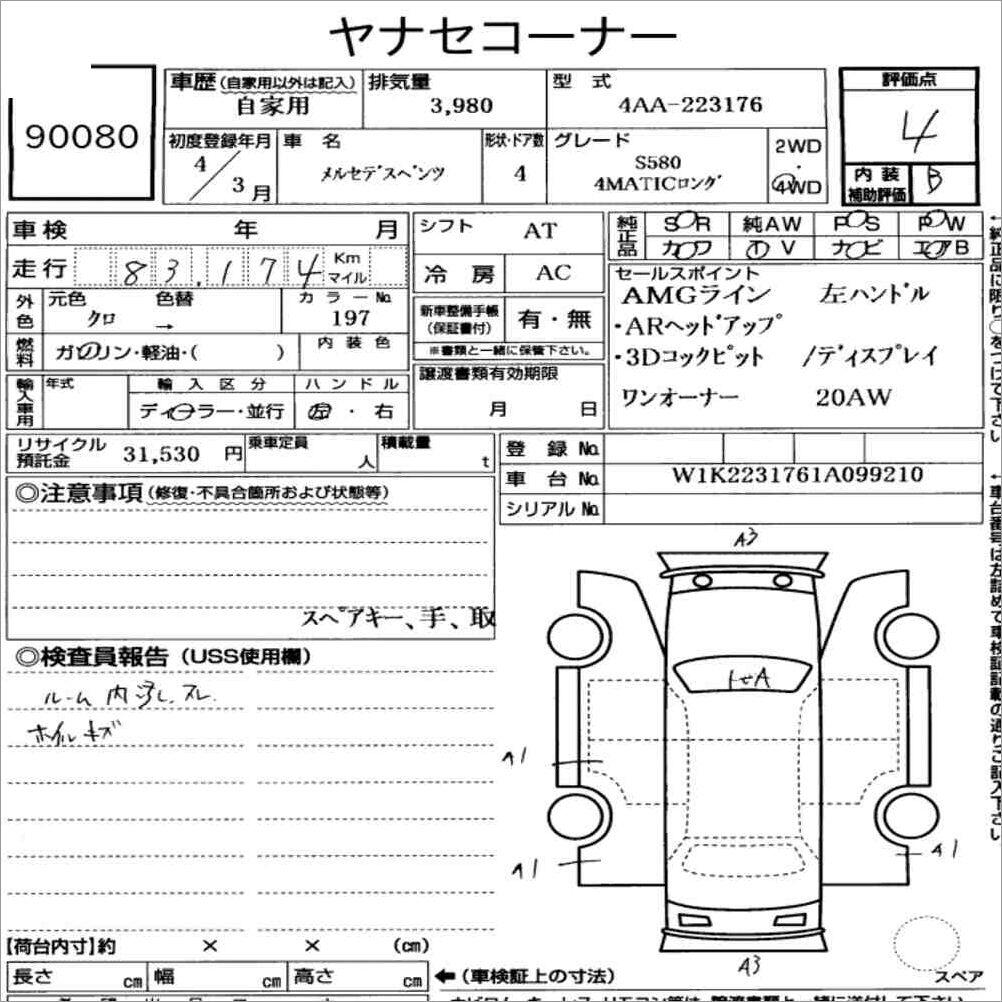 ヤナセコーナー
90080
車歴(自家用以外は記入) 自家用
排気量 3,980
型式 4AA-223176
評価点 4
初度登録年月 4/3月
車名 メルセデスベンツ
形状・ドア数 4
グレード S580 4MATICロング
2WD・4WD
内装補助評価 B
車検 年 月
シフト AT
純正品 SR 純AW PS PW
カワ TV ナビ エアB
走行 83,174 Km マイル
冷房 AC
セールスポイント
AMGライン 左ハンドル
・ARヘッドアップ
・3Dコックピット /ディスプレイ
ワンオーナー 20AW
外色 元色 クロ 色替 → カラーNo. 197
新車整備手帳(保証書付) 有・無
※書類と一緒に保管下さい。
燃料 ガソリン・軽油・( ) 内装色
輸入車用 年式 輸入区分 ハンドル
ディーラー・並行 左・右
譲渡書類有効期限
月 日
リサイクル預託金 31,530 円 乗車定員 人 積載量 t
登録No.
車台No. W1K2231761A099210
シリアルNo.
◎注意事項(修復・不具合箇所および状態等)
スペアキー、手、取
◎検査員報告(USS使用欄)
ルーム内汚レ.スレ.
ホイルキズ
A3
A1
A1
A1
A3
スペア
←純正品に限り○をつけて下さい
←車台番号は左詰めで車検証記載の通りご記入下さい
【荷台内寸】約 × × (cm)
長さ cm 幅 cm 高さ cm ←(車検証上の寸法)